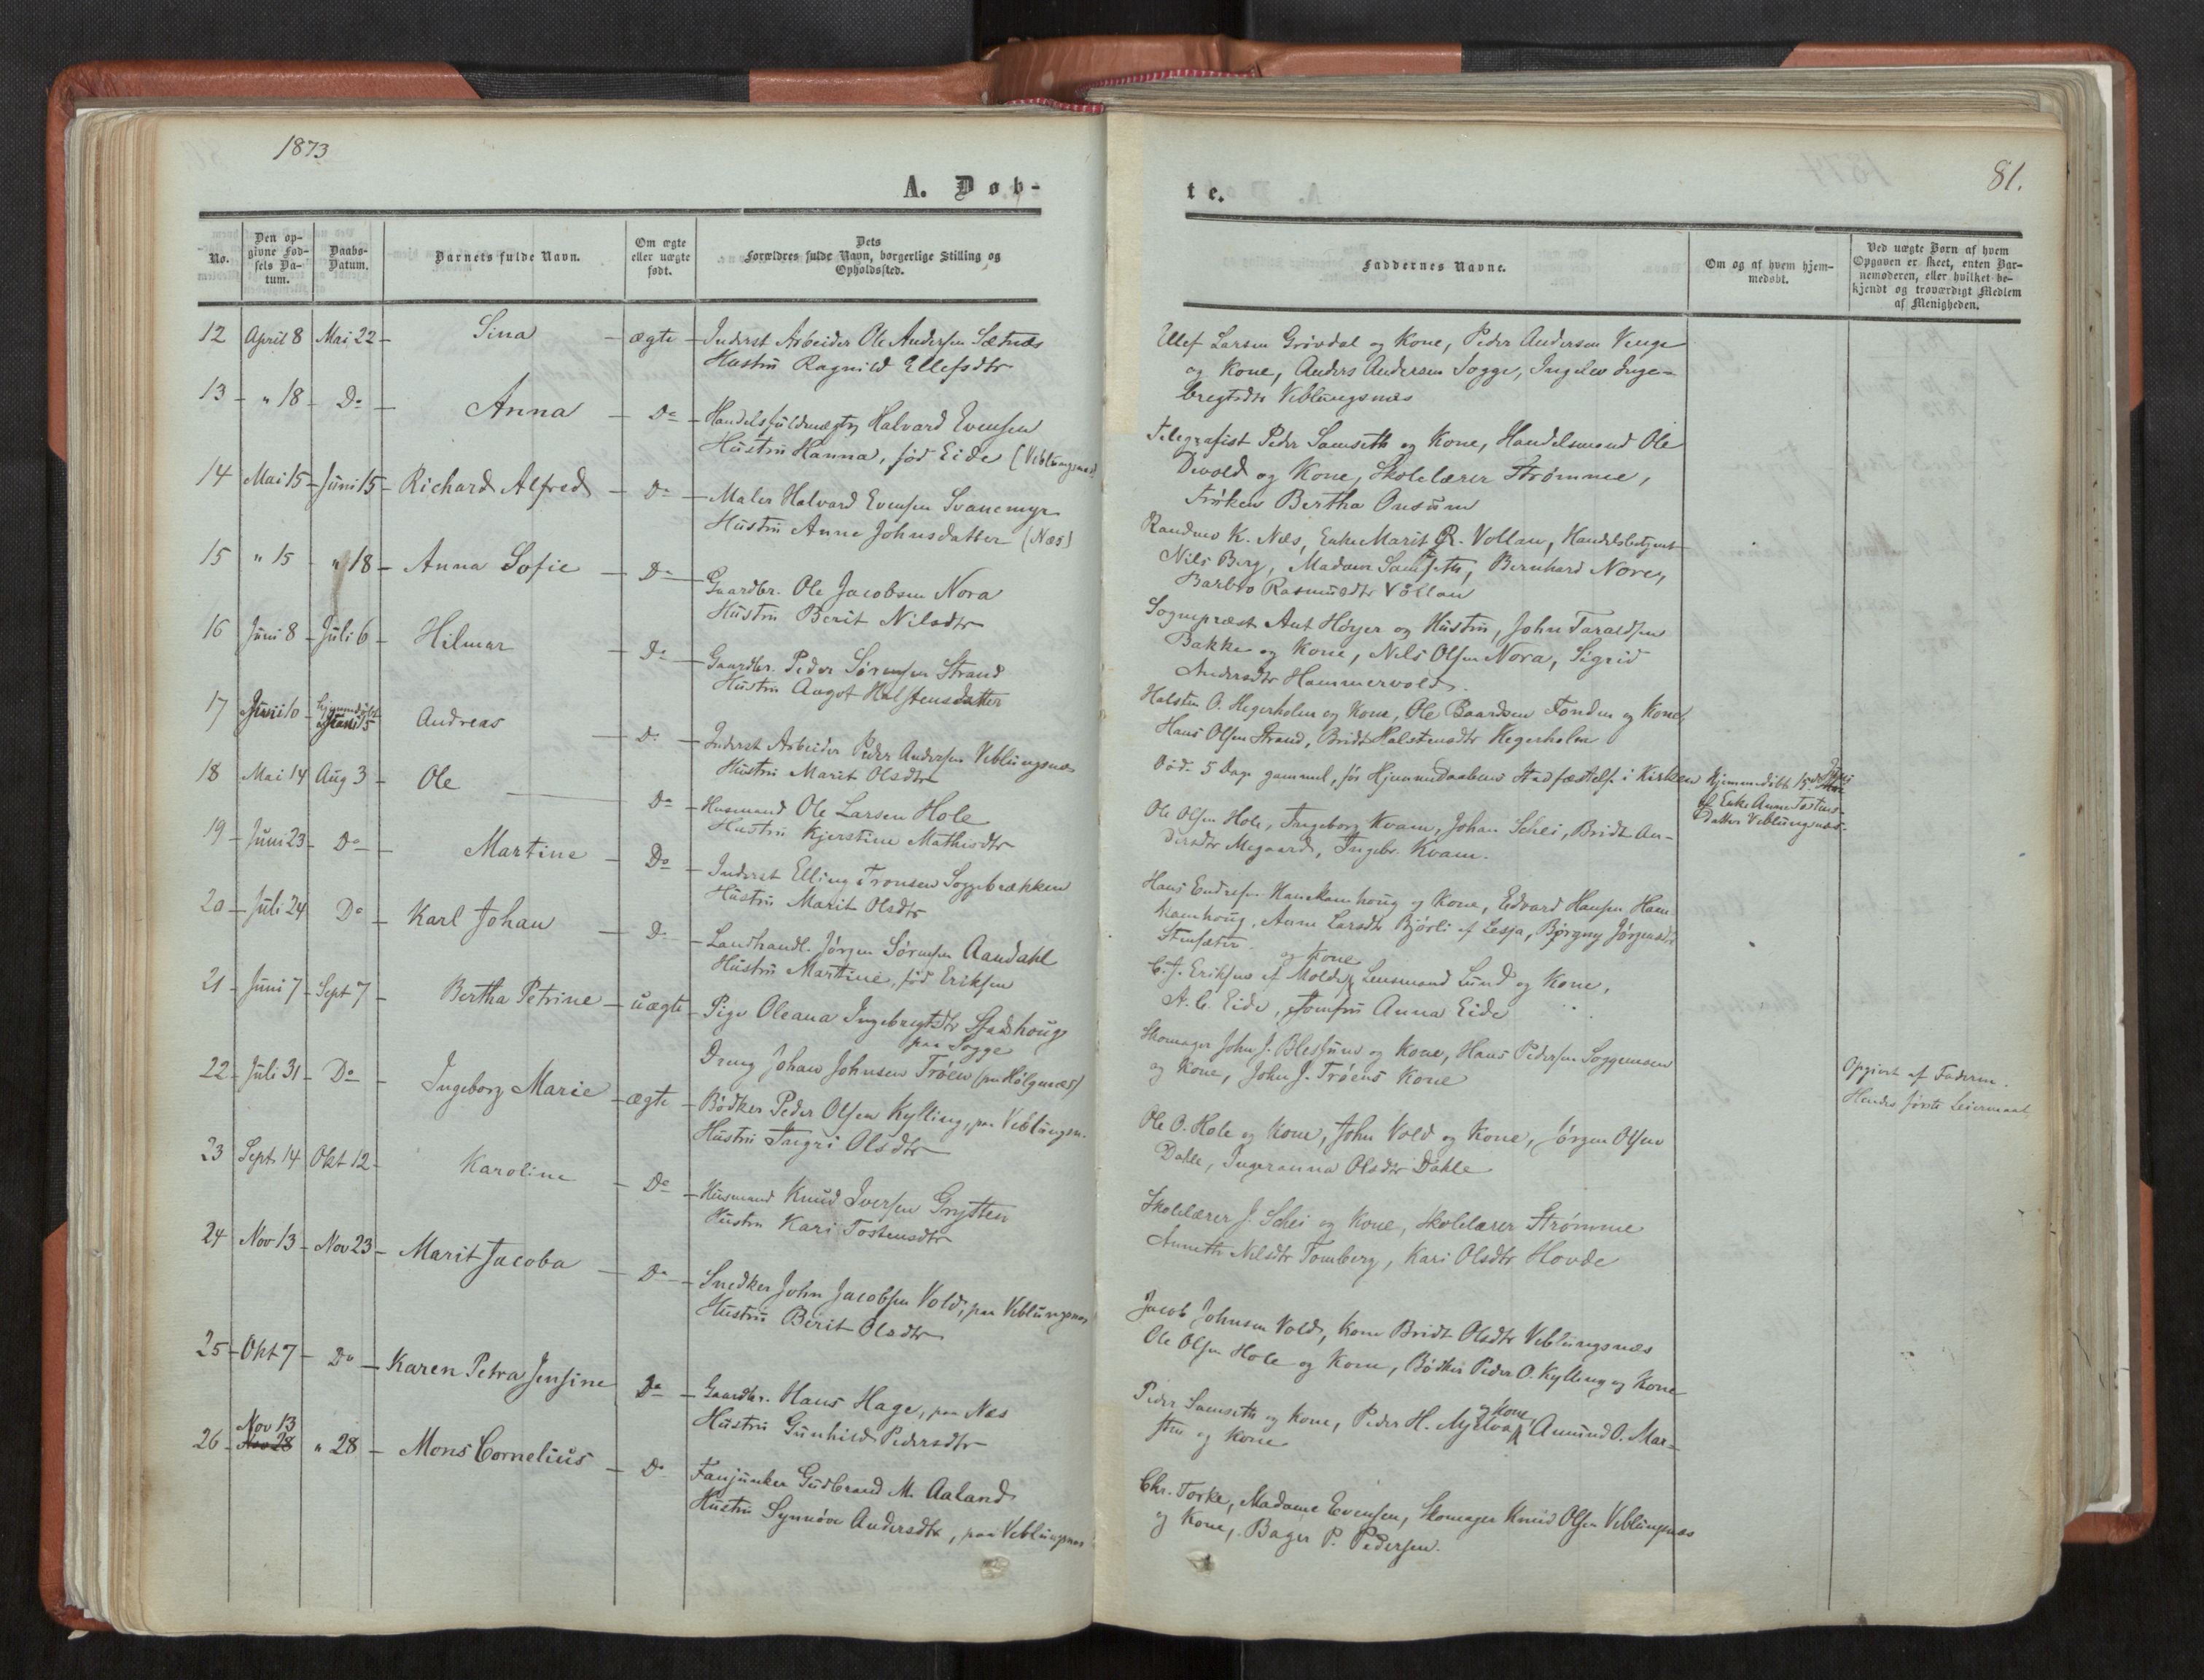 1873
A. Døb-
No.
Den op-
givne Fød-
sels Da-
tum.
Daabs-
Datum.
Barnets fulde Navn.
Om ægte
eller uægte
født.
Dets
Forældres fulde Navn, borgerlige Stilling og
Opholdssted.
12 April 8 Mai 22 - Sina - ægte - Inderst Arbeider Ole Andersen Sætnes
Hustru Ragnild Ellefsdtr
13 - " 18 - Do - Anna - Do - Handelsfuldmægtig Halvard Evensen
Hustru Hanna, fød Eide (Veblungsnes)
14 Mai 15 - Juni 15 - Richard Alfred - Do - Maler Halvard Evensen Svanemyr
Hustru Anne Johnsdatter (Næs)
15 " 15 " 18 - Anna Sofie - Do - Gaardbr. Ole Jacobsen Nora
Hustru Berit Nilsdtr
16 Juni 8 - Juli 6 - Hilmar - Do - Gaardbr. Peder Sørensen Strand
Hustru Angot Halstensdatter
17 Juni 10 - Hjemmedøbt
Juni 15 Andreas - Do - Inderst Arbeider Peder Andersen Veblungsnæs
Hustru Marit Olsdtr
18 Mai 14 Aug 3 - Ole - Do - Husmand Ole Larsen Hole
Hustru Kjerstine Mathisdtr
19 - Juni 23 - Do - Martine - Do - Inderst Elling Tronsen Soggebrækken
Hustru Marit Olsdtr
20 - Juli 24 Do - Karl Johan - Do - Landhandl. Jørgen Sørensen Aandahl
Hustru Martine, fød Eriksen
21 - Juni 7 - Sept 7 - Bertha Petrine - uægte - Pige Oleana Ingebregtsdtr Stadshoug
paa Sogge
Dreng Johan Johnsen Trøen (paa Hølgenæs)
22 - Juli 31 - Do - Ingeborg Marie - ægte - Bødker Peder Olsen Kylling, paa Veblungsn.
Hustru Ingri Olsdtr
23 Sept. 14 Okt 12 - Karoline - Do - Husmand Knud Iversen Grytten
Hustru Kari Tostensdtr
24 Nov 13 - Nov 23 - Marit Jacoba - Do - Snedker John Jacobsen Vold, paa Veblungsnes
Hustru Berit Olsdtr
25 - Okt 7 - Do - Karen Petra Jensine Do - Gaardbr. Hans Hage, paa Næs
Hustru Gunhild Pedersdtr
Nov 13
26 - Nov 28 " 28 - Mons Cornelius - Do Fanjunker Gudbrand M. Aaland
Hustru Synnøve Andersdtr, paa Veblungsnes
te.
81.
Faddernes Navne.
Om og af hvem hjem-
medøbt.
Ved uægte Børn af hvem
Opgaven er skeet, enten Bar-
nemoderen, eller hvilket be-
kjendt og troværdigt Medlem
af Menigheden.
Ellef Larsen Grøvdal og Kone, Peder Andersen Venge
og Kone, Anders Andersen Sogge, Ingelev Inge-
bregtsdtr Veblungsnæs
Telegrafist Peder Samseth og Kone, Handelsmand Ole
Devold og Kone, Skolelærer Strømme,
Frøken Bertha Onsum
Randmo K. Næs, Enke Marit R. Vollan, Handelsbetjent
Nils Berg, Madam Samseth, Bernhard Nore,
Barbro Rasmusdtr Vollan
Sognepræst Ant Høyer og Hustru, John Taraldsen
Bakke og Kone, Nils Olsen Nora, Sigrid
Andersdtr Hammervold.
Halsten O. Hegerholm og Kone, Ole Baardsen Fonden og Kone,
Hans Olsen Strand, Bridt Halstensdtr Hegerholm
Død 5 Dage gammel, før Hjemmedaabens Stadfæstelse i Kirken
Hjemmedøbt 15de Juni
af Enke Anne Tostens-
datter Veblungsnæs.
Ole Olsen Hole, Ingeborg Kvam, Johan Schei, Bridt An-
dersdtr Megaard, Ingebr. Kvam.
Hans Endresen Hamkamhoug og Kone, Edvard Hansen Ham-
kamhoug, Anne Larsdtr Bjørli af Lesja, Børgny Jørgensdtr
Stensæter.
og Kone
C. J. Eriksen af Molde, Lensmand Lund og Kone,
A. C. Eide, Jomfru Anna Eide
Skomager John J. Blessum og Kone, Hans Pedersen Soggemoen
og Kone, John J. Trøens Kone
Opgivet af Faderen.
Hendes første Leiermaal
Ole O. Hole og Kone, John Vold og Kone, Jørgen Olsen
Dahle, Ingeranna Olsdtr Dahle
Skolelærer J. Schei og Kone, Skolelærer Strømme
Anneth Nilsdtr Tomberg, Kari Olsdtr Hovde
Jacob Johnsen Vold, Kone Bridt Olsdtr Veblungsnæs
Ole Olsen Hole og Kone, Bødker Peder O. Kylling og Kone
og Kone,
Peder Samseth og Kone, Peder H. Mjelva, Amund O. Mar-
stein og Kone
Chr. Torke, Madame Evensen, Skomager Knud Olsen Veblungsnæs
og Kone, Bager P. Pedersen.